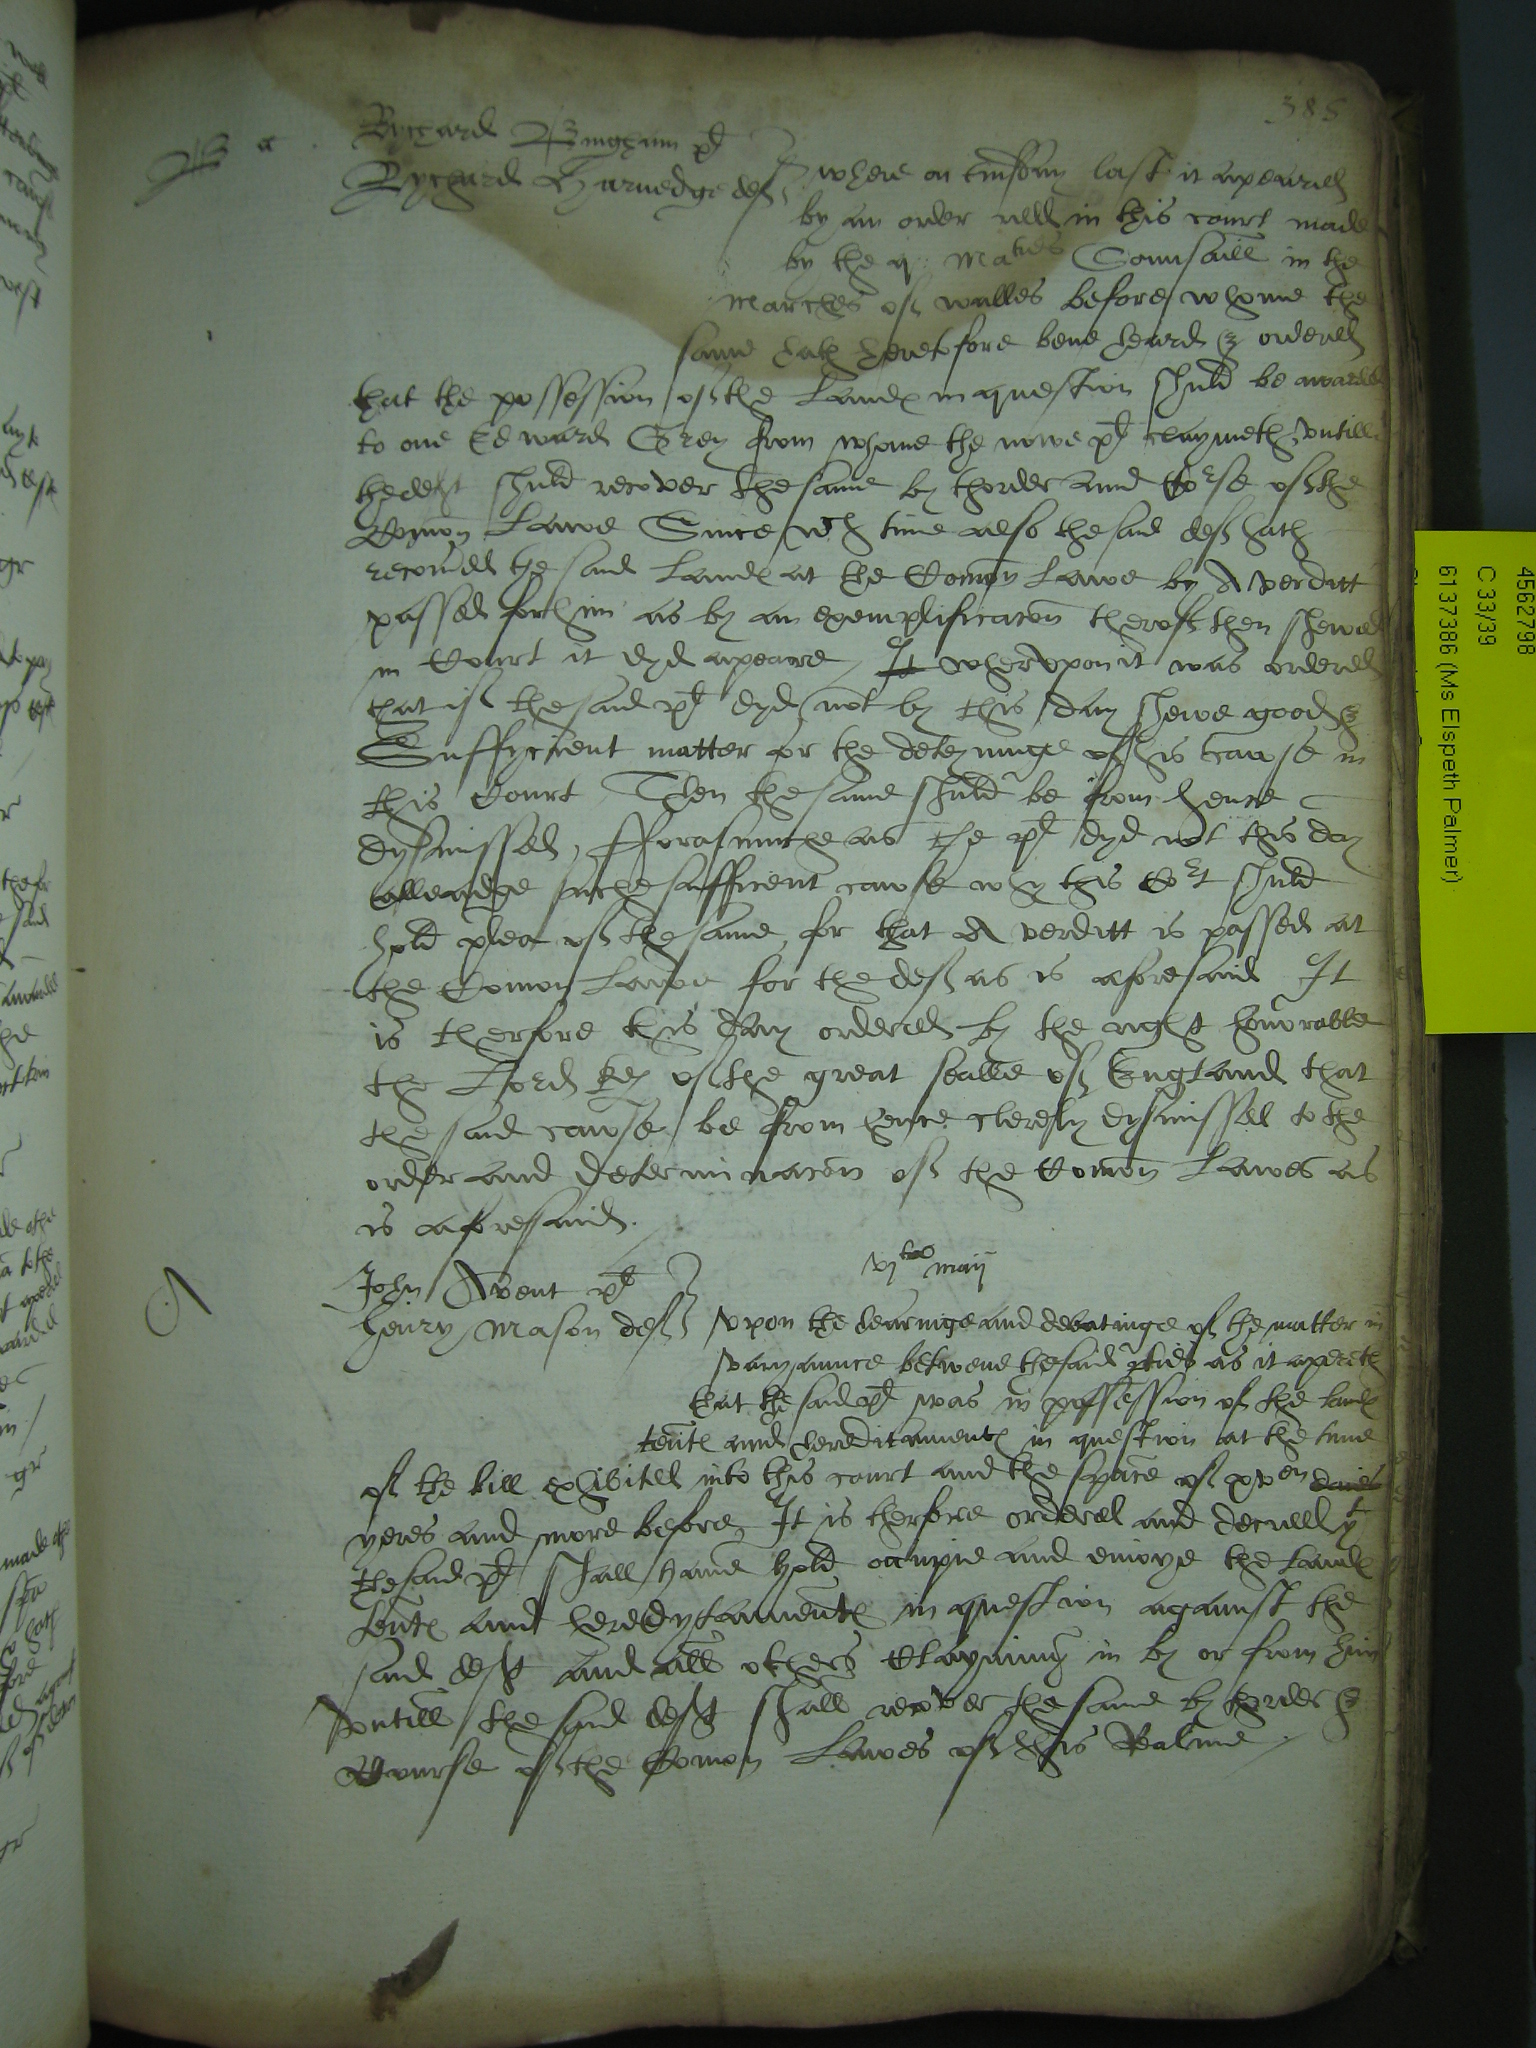 385
B a
Rychard Bingham pl
Rychard Harnedge def
where on last it apeared
by an order in this court made
by the q: Maties Counsaill in the
Marches of walles before whome the
same hath heretofore bene heard & ordered
that the possession of the Landes in question shuld be awarded
to one Edward Grey from whome the nowe pl claymeth vntill
the deft shuld recover the same by thorder and Corse of the
Comon Lawe Since wch time also the said def hath
recoued the said Landes at the Comon Lawe by A verditt
passed for him as by an exemplificacon therof then shewed
in Court it dyd apeare / It whervpon it was ordered
that if the said pl dyd not by this day shewe good &
Suffycient matter for the deteyninge of his cawse in
this Court Then the same shuld be from hence
dysmissed, fforasmuche as the pl dyd not this day
alleadge suche sufficent cawse why this Cort shuld
hold plea of the same, for that A verditt is passed at
the Comon Lawe for the def as is aforesaid It
is therfore this day ordered by the right honorable
the Lord kep of the great sealle of England that
the said cawse be from hence clerely dysmissed to the
order and determinacon of the Comon Lawes as
is aforesaid.
vjto maij
A
John Avent pl
henry Mason def
vpon the hearinge and debatinge of the matter in
varyaunce betwene the said pties as it apereth
that the said pl was in possession of the landes
tentes and hereditamentes in question at the time
of the bill exhibited into this court and the space of xven daies
yeres and more before, It is therfore ordered and decreed yt
the said pl shall haue hold occupie and enioye the Landes
tentes and heredytamentes in question against the
said deft and all others Clayming in by or from him
vntill the said deft shall recover the same by thorder &
Course of the Comon Lawes of this Realme /
4562798
C 33/39
6137386 (Ms Elspeth Palmer)